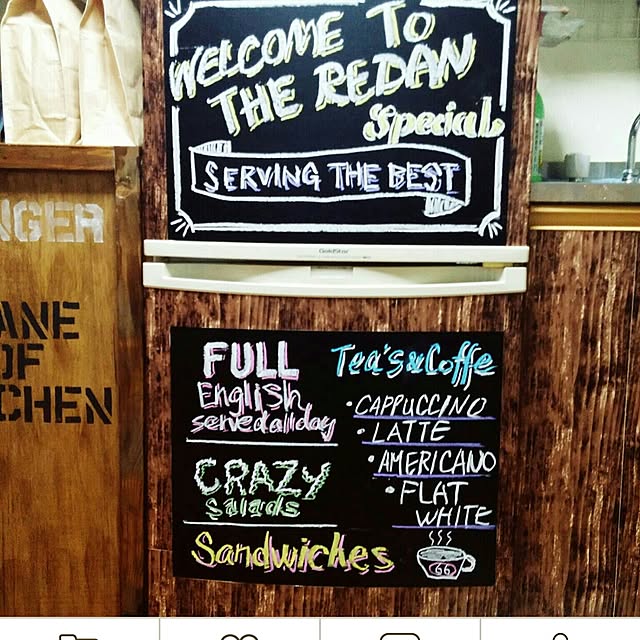 WELCOME TO
THE REDAN
Special
SERVING THE BEST
GoldStar
NGER
ANE
OF
CHEN
FULL
English
served allday
CRAZY
Salads
Sandwiches
Tea's&Coffe
• CAPPUCCINO
• LATTE
• AMERICANO
• FLAT
WHITE
66